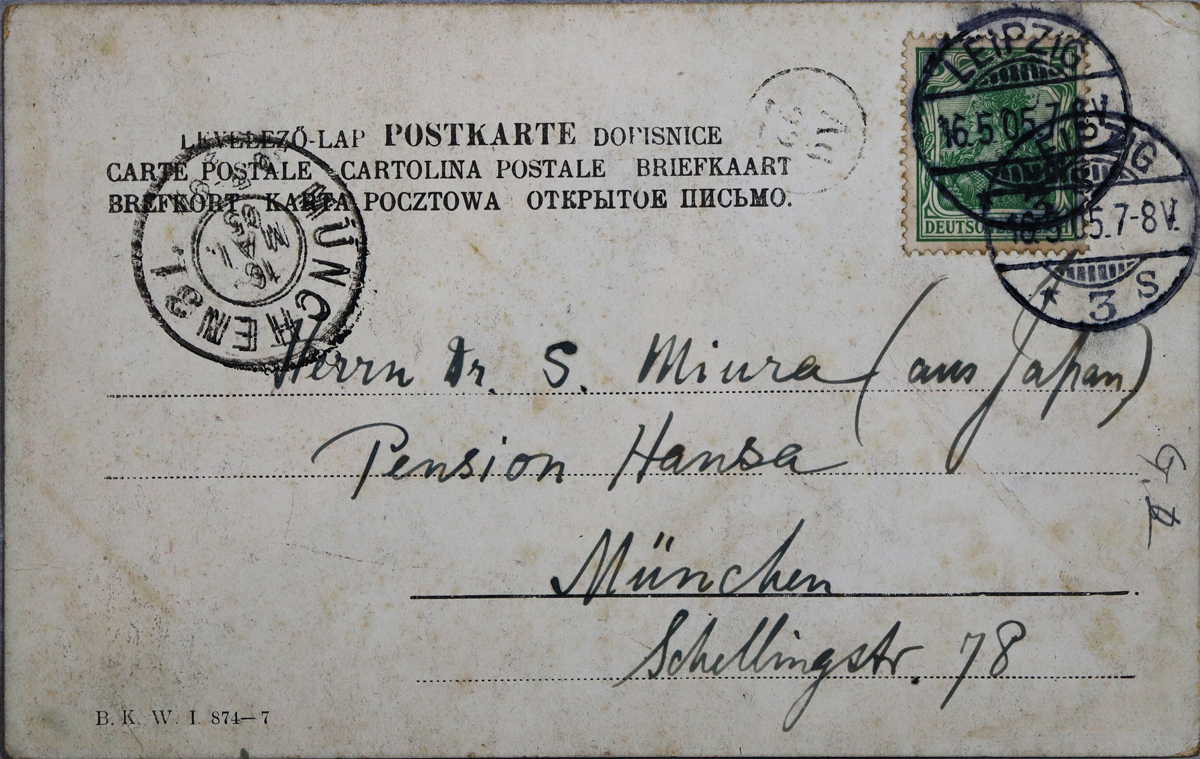 LEVELEZŐ-LAP POSTKARTE DOPISNICE
CARTE POSTALE CARTOLINA POSTALE BRIEFKAART
BREFKORT KARTA POCZTOWA ОТКРЫТОЕ ПИСЬМО.
LEIPZIG
16.5.05.7-8V.
LEIPZIG
16.5.05.7-8V.
* 3 S
DEUTSCHES REICH
MÜNCHEN 31.
16. MAI
Herrn Dr. S. Miura (aus Japan)
Pension Hansa
München
Schellingstr. 78
B. K. W. I. 874-7